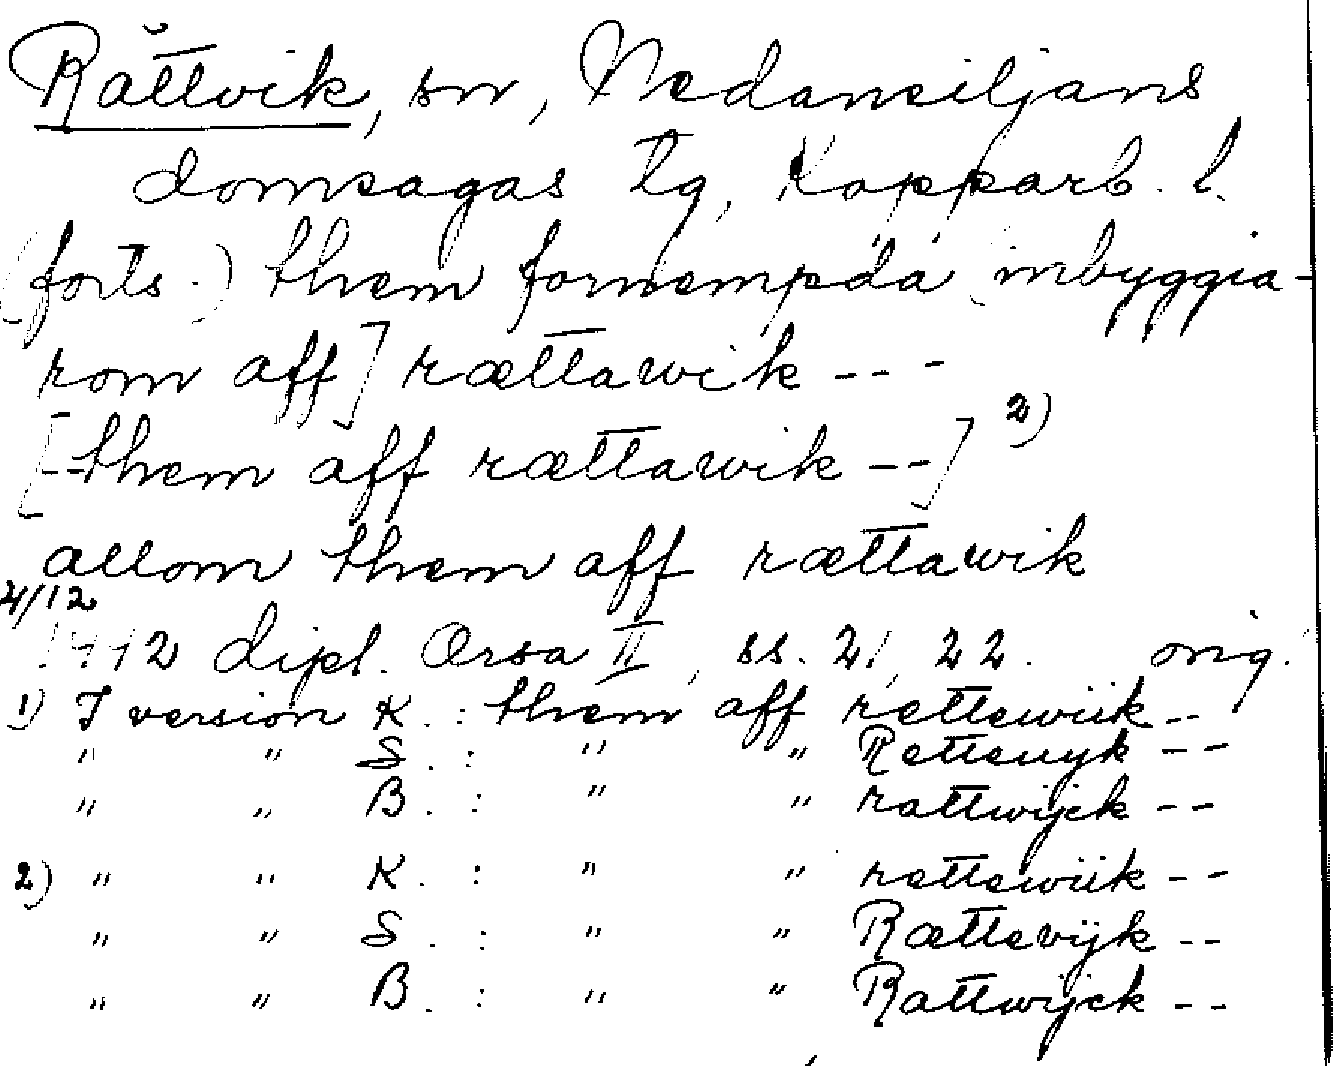 Rättvik, sn, Nedansiljans
domsagas tg, Kopparb. l.
(forts.) them fornempda inbyggia-
rom aff] rættawik ---
[--them aff rættawik --] 2)
allom them aff rættawik
4/12
1442 dipl. Orsa II, ss. 21, 22. orig.
1) I version K. : them aff rettewiik --
" " S. : " " Rettewyk --
" " B. : " " rattwijck --
2) " " K. : " " rettewiik --
" " S. : " " Rættevijk --
" " B. : " " Rattwijck --